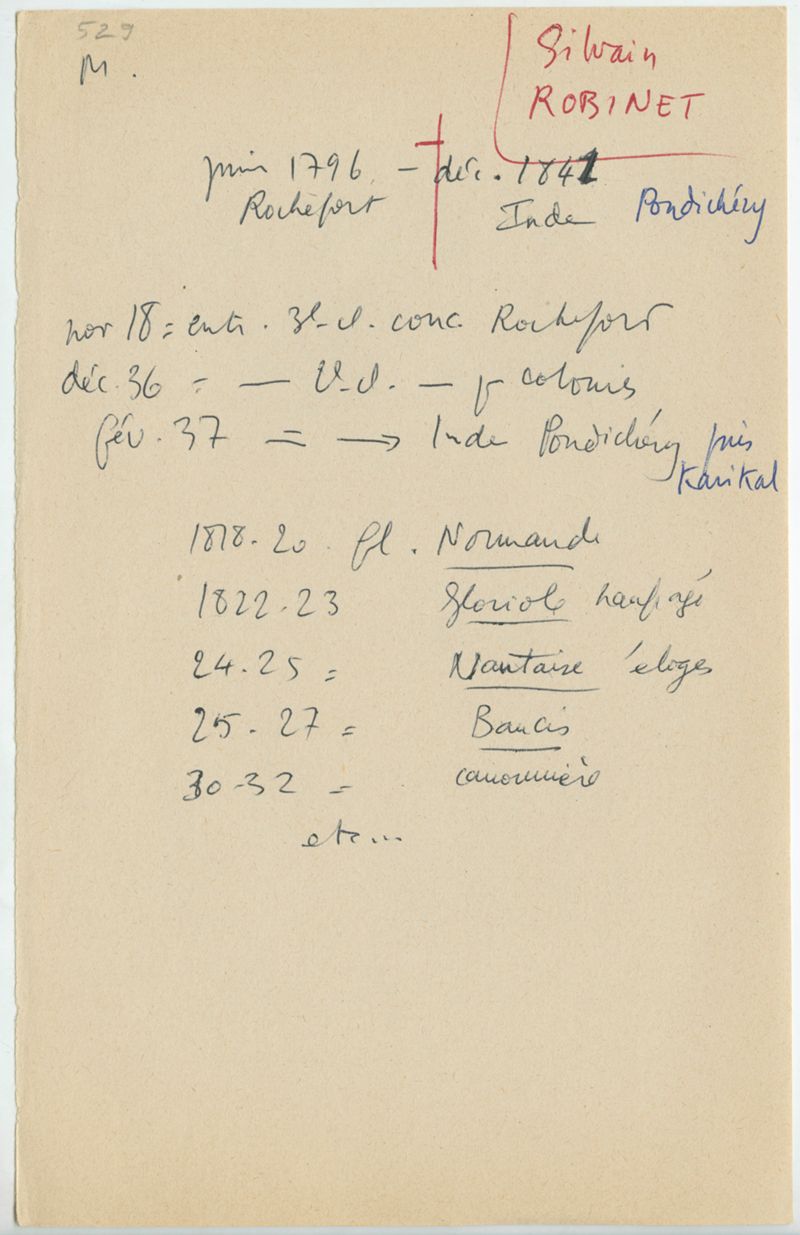 529
M.
Silvain
ROBINET
juin 1796 - déc. 1841
Rochefort Inde Pondichéry
nov 18 = entr. 3e cl. conc. Rochefort
déc. 36 = — 2e cl. — pr colonies
fév. 37 = → Inde Pondichéry puis
Karikal
1818-20. fl. Normande
1822-23 Gloriole naufragé
24-25 = Nantaise éloges
25-27 = Baucis
30-32 = canonnière
etc...